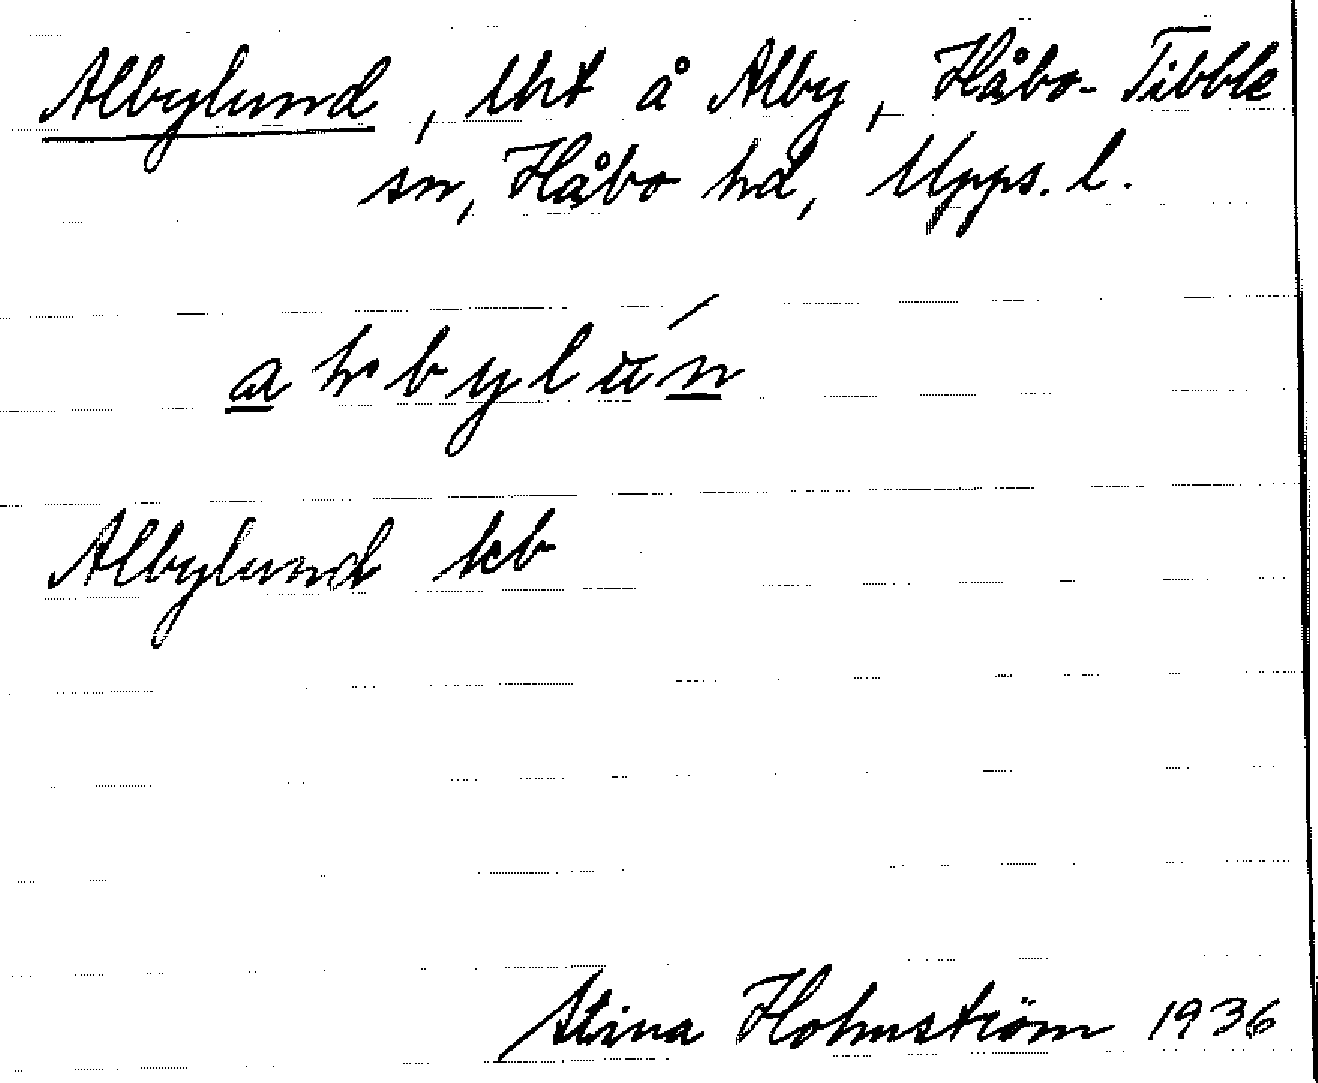 Albylund, lht å Alby, Håbo-Tibble
sn, Håbo hd, Upps. l.
Albylund kb
Stina Holmström 1936